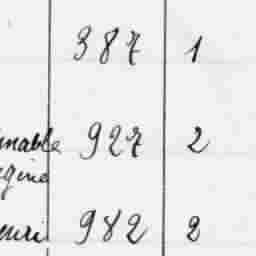 387 1
mable 927 2
gine
enri 982 2